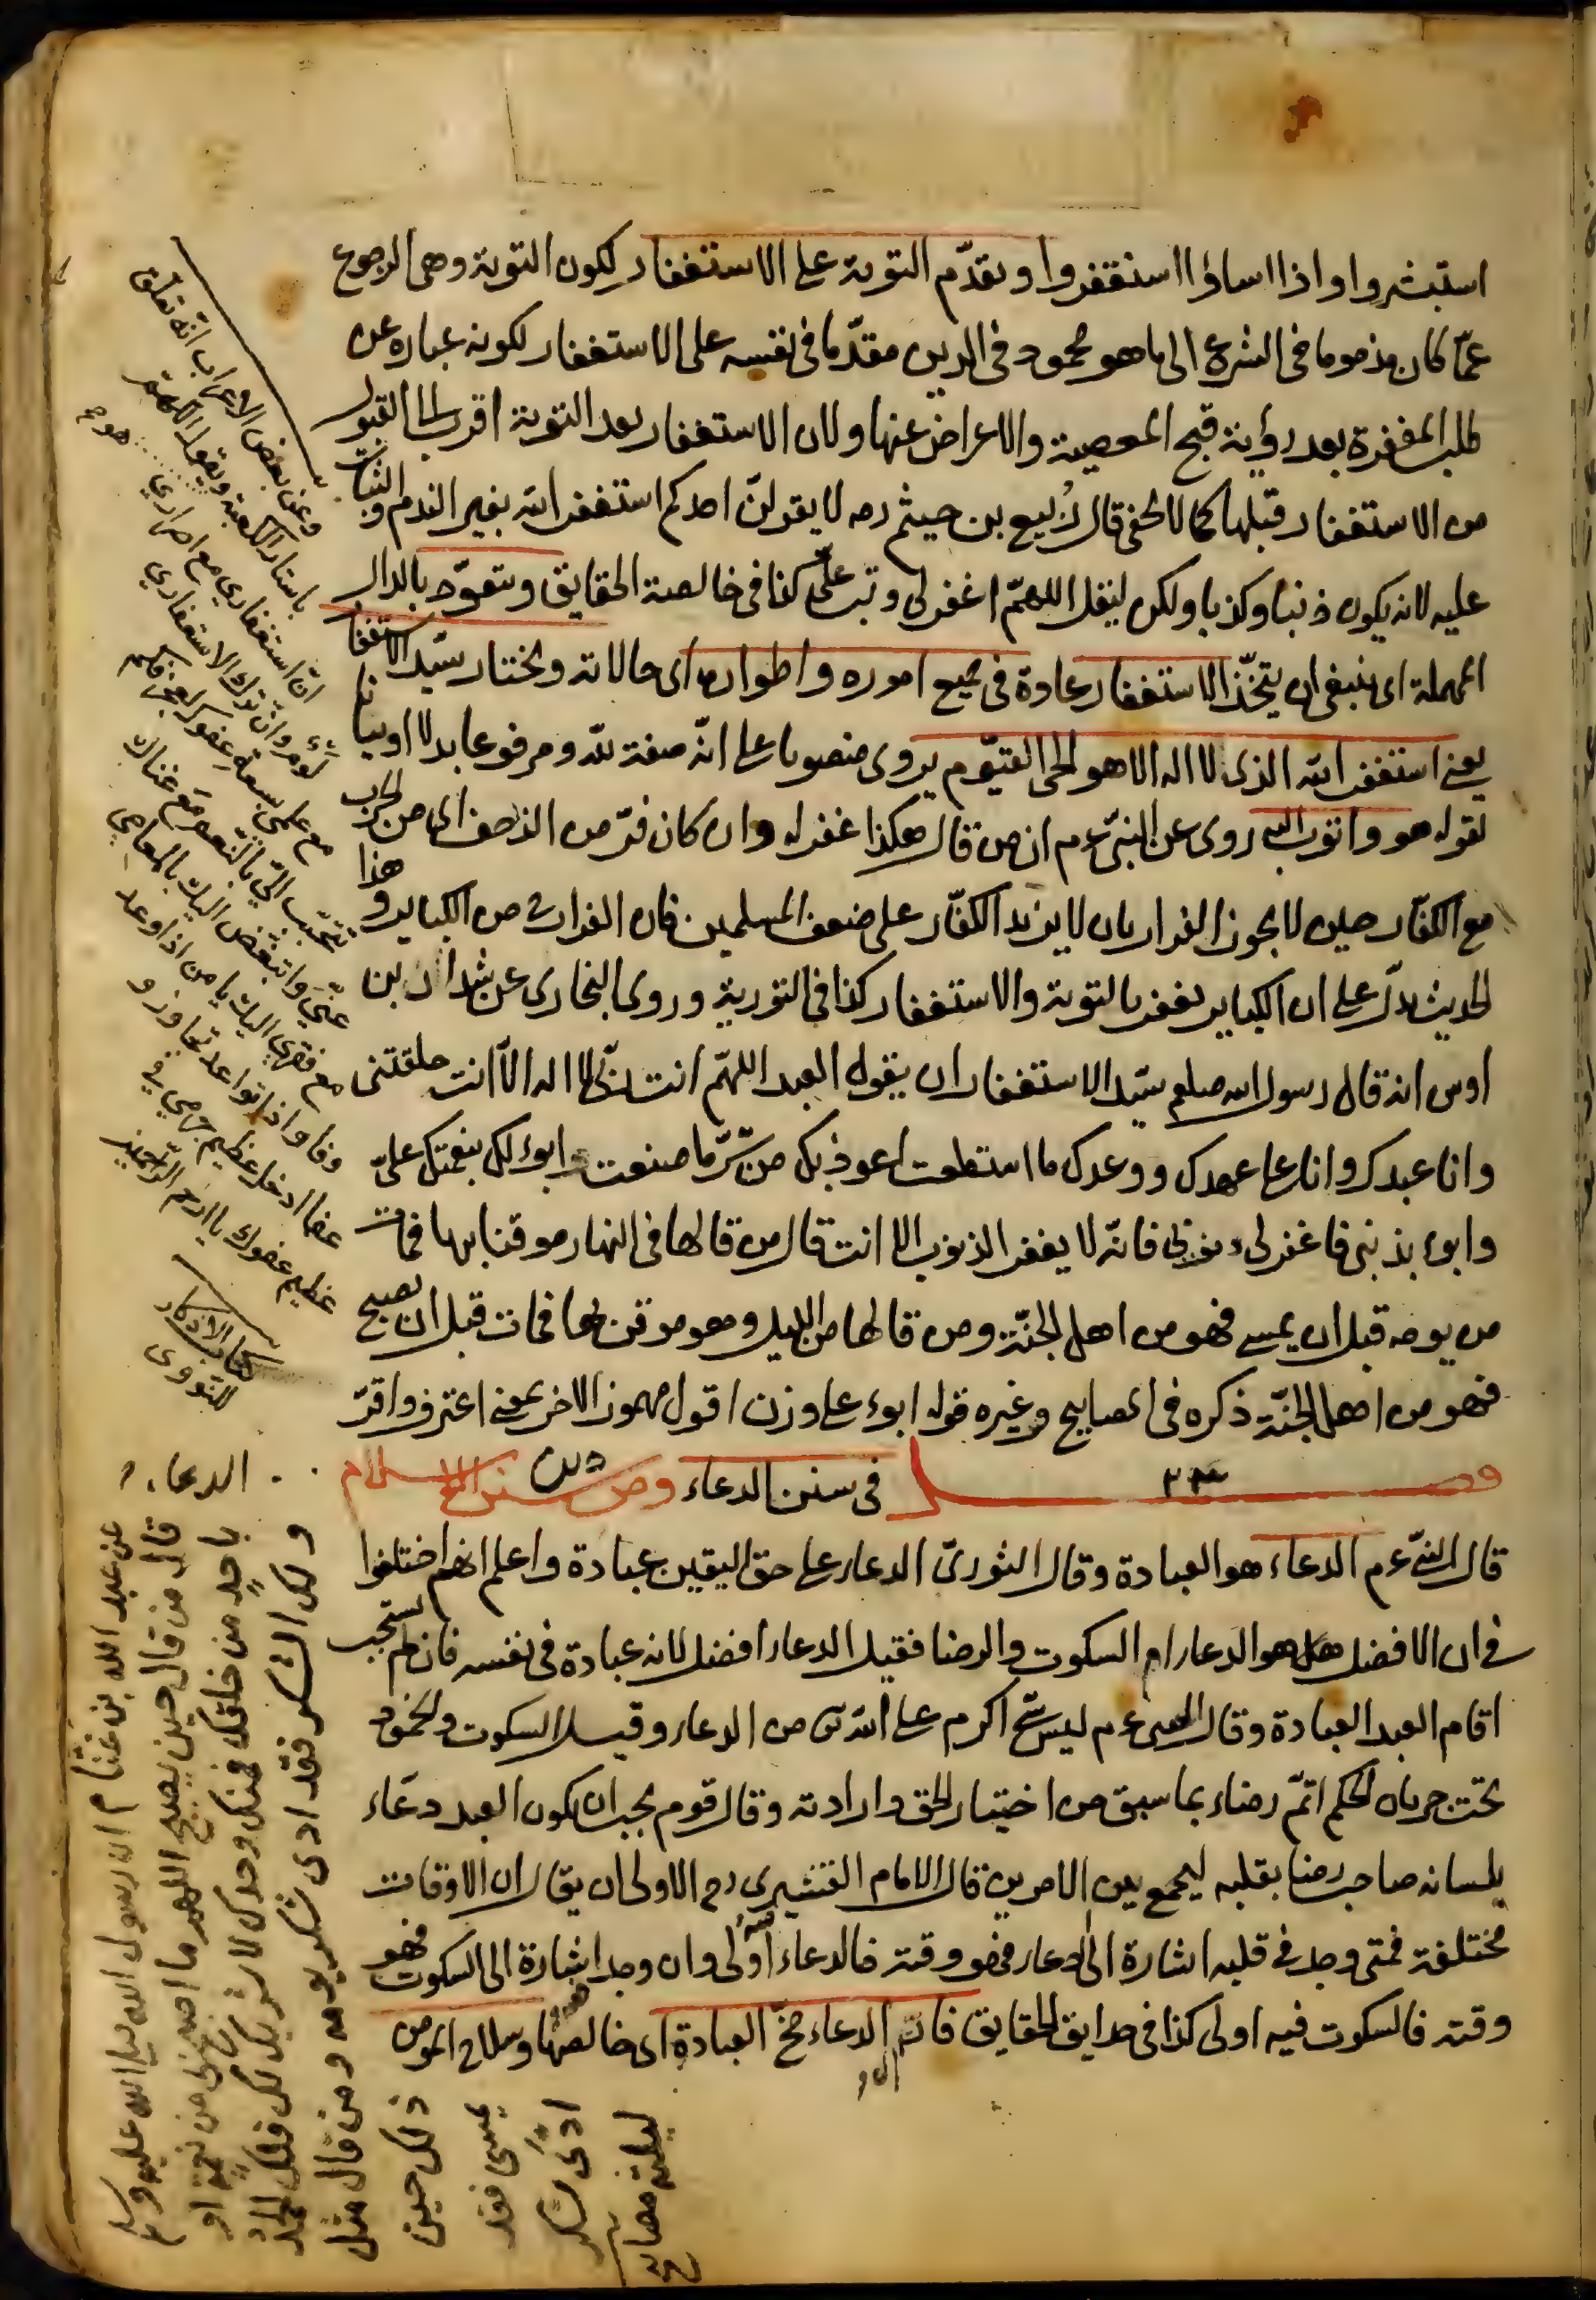 استبشروا واذا اساؤا استغفروا وتقدّم التوبة على الاستغفار لكون التوبة وهى الرجوع
عمّا كان مذموما فى الشرع الى ما هو محمود فى الدين مقدّما فى نفسه على الاستغفار لكونه عباره عن
طلب المغفرة بعد رؤية قبح المعصية والاعراض عنها ولان الاستغفار بعد التوبة اقرب الى القبول
من الاستغفار قبلها كما لا يخفى قال ربيع بن خيثم رحه لا يقولنّ احدكم استغفر الله بغير الندم والثبات
عليه لانه يكون ذنبا وكذبا ولكن ليقل اللهمّ اغفر لى وتب علىّ كذا فى خالصة الحقايق ويتعوّد بالدال
المهملة اى ينبغى ان يتخذ الاستغفار عادة فى جميع اموره واطواره اى حالاته ويختار سيّد الاستغفار
يعنى استغفر الله الذى لا اله الا هو الحى القيّوم يروى منصوبا على انّه صفة لله ومرفوعا بدلا او بيانا
لقوله هو واتوب اليه روى عن النبىّ عم ان من قال هكذا غفر له وان كان فرّ من الزحف اى من الحرب
مع الكفّار حين لا يجوز الفرار بان لا يزيد الكفّار على ضعف المسلمين فان الفرار ح من الكباير وهذا
الحديث يدلّ على ان الكباير يغفر بالتوبة والاستغفار كذا فى التورية وروى البخارى عن شداد بن
اوس انه قال رسول الله صلعم سيّد الاستغفار ان يقول العبد اللهمّ انت ربّى لا اله الّا انت خلقتنى
وانا عبدك وانا على عهدك ووعدك ما استطعت اعوذ بك من شرّ ما صنعت ابوء لك بنعمتك علىّ
وابوء بذنبى فاغفر لى ذنوبى فانّه لا يغفر الذنوب الا انت قال من قالها فى النهار موقنا بها فمات
من يومه قبل ان يمسى فهو من اهل الجنّة ومن قالها من الليل وهو موقن بها فمات قبل ان يصبح
فهو من اهل الجنّة ذكره فى المصابيح وغيره قوله ابوء على وزن اقول مهموز الاخر بمعنى اعترف واقرّ
فصل ٢٣ فى سنن الدعاء ومن سنن الاسلام
قال النبىّ عم الدعاء هو العبادة وقال الثورىّ الدعاء على حق اليقين عبادة واعلم انهم اختلفوا
فى ان الافضل هل هو الدعاء ام السكوت والرضا فقيل الدعاء افضل لانه عبادة فى نفسه فان لم يستجب
اقام العبد العبادة وقال النبى عم ليس شئ اكرم على الله تى من الدعاء وقيل السكوت والخمود
تحت جريان الحكم اتمّ رضاء بما سبق من اختيار الحق وارادته وقال قوم يجب ان يكون العبد دعّاء
بلسانه صاحب رضا بقلبه ليجمع بين الامرين قال الامام القشيرى رح الاولى ان يقال ان الاوقات
مختلفة فمتى وجد فى قلبه اشارة الى الدعاء فهو وقته فالدعاء اولى وان وجد اشارة الى السكوت فهو
وقته فالسكوت فيه اولى كذا فى حدايق الحقايق فانّ الدعاء مخّ العبادة اى خالصها وسلاح المومن
وعن بعض الاعراب انّه تعلّق
باستار الكعبة ويقول اللهم
انّ استغفاري مع اصراري
لؤم وانّ تركى الاستغفاري
مع علمي بسعة عفوك لعجز فكم
تتحبّب اليّ بالنّعم مع غناك
عنّي واتبغّض اليك بالمعاصي
مع فقري اليك يا من اذا وعد
وفا واذا تواعد تجاوز و
عفا ادخل عظيم جرمي في
عظيم عفوك يا ارحم الراحمين
كتاب الاذكار
للنووى
الدعاء
عن عبد الله بن غنّام ان رسول الله صلى الله عليه وسلم
قال من قال حين يصبح اللهم ما اصبح بى من نعمة او
باحدٍ من خلقك فمنك وحدك لا شريك لك فلك الحمد
ولك الشكر فقد ادى شكر يومه ومن قال مثل
ذلك حين
يمسى فقد
ادّى شكر
ليلته مصابيح